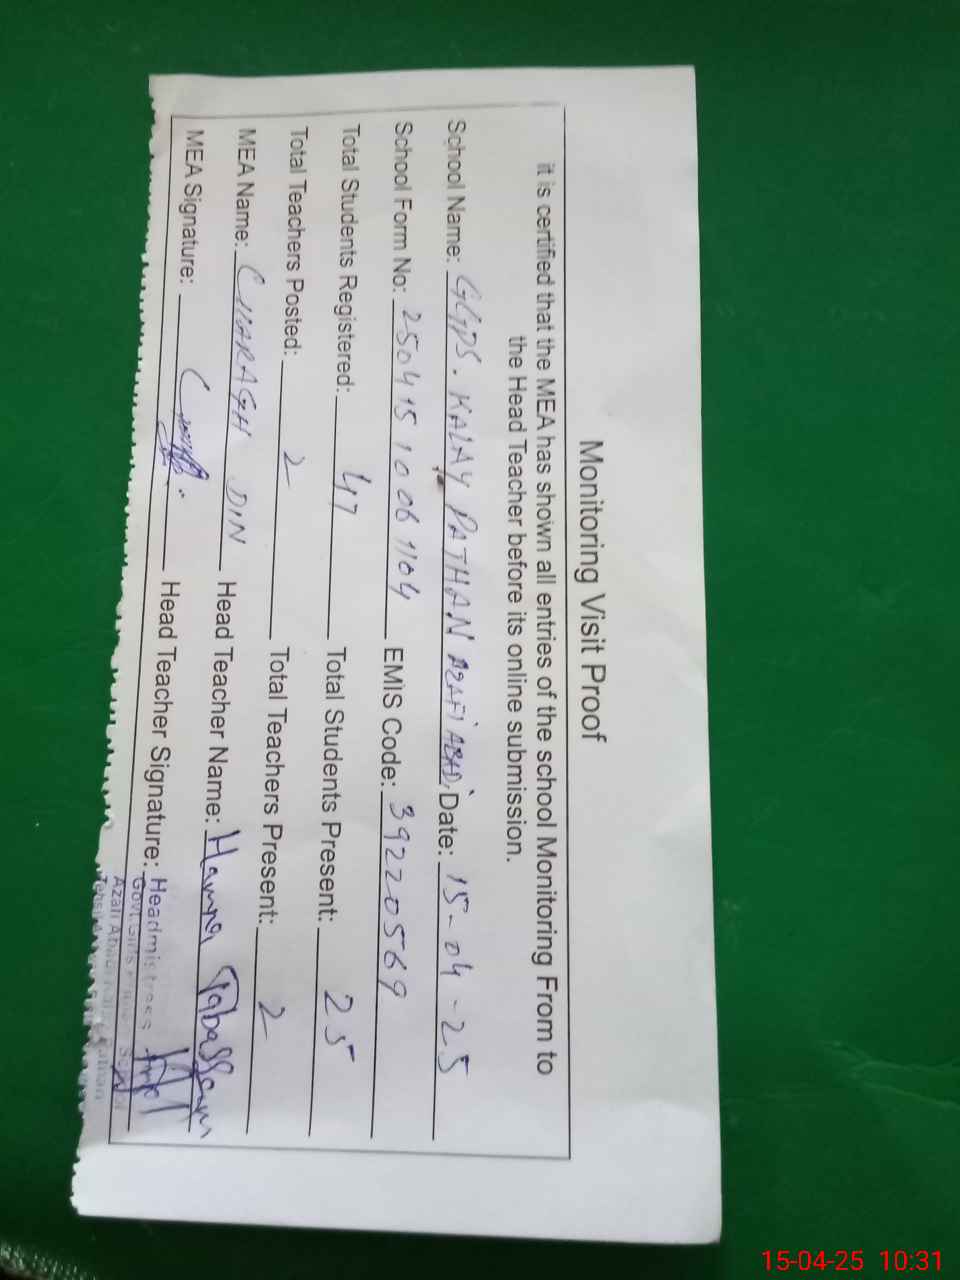 Monitoring Visit Proof
it is certified that the MEA has shown all entries of the school Monitoring From to
the Head Teacher before its online submission.
School Name: GGPS. KALAY PATHAN AZAFI ABAD, Date: 15-04-25
School Form No: 2504151006 1104 EMIS Code: 39220569
Total Students Registered: 47 Total Students Present: 25
Total Teachers Posted: 2 Total Teachers Present: 2
MEA Name: CHARAGH DIN Head Teacher Name: Tabassam
MEA Signature: Head Teacher Signature:
Headmistress
Govt. Girls
Azafi Abad
15-04-25 10:31